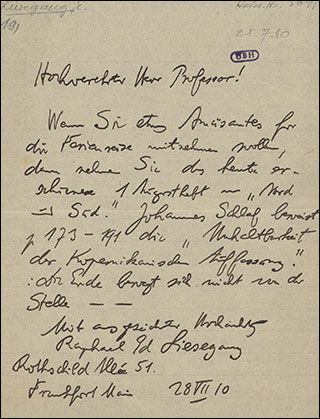 Liesegang, E.
19)
28 7.10
OBH
Hochverehrter Herr Professor!
Wenn Sie etwas Amüsantes für
die Ferienreise mitnehmen wollen,
dann nehmen Sie das heute er-
schienene 1 Augustheft von „Nord
und Süd." Johannes Schlaf beweist
p 173-191 die „Unhaltbarkeit
der Kopernikanischen Auffassung"
: die Erde bewegt sich nicht von der
Stelle — —
Mit ausgezeichneter Hochachtung
Raphael Ed Liesegang
Rothschild Allée 51.
Frankfurt Main 28 VII 10